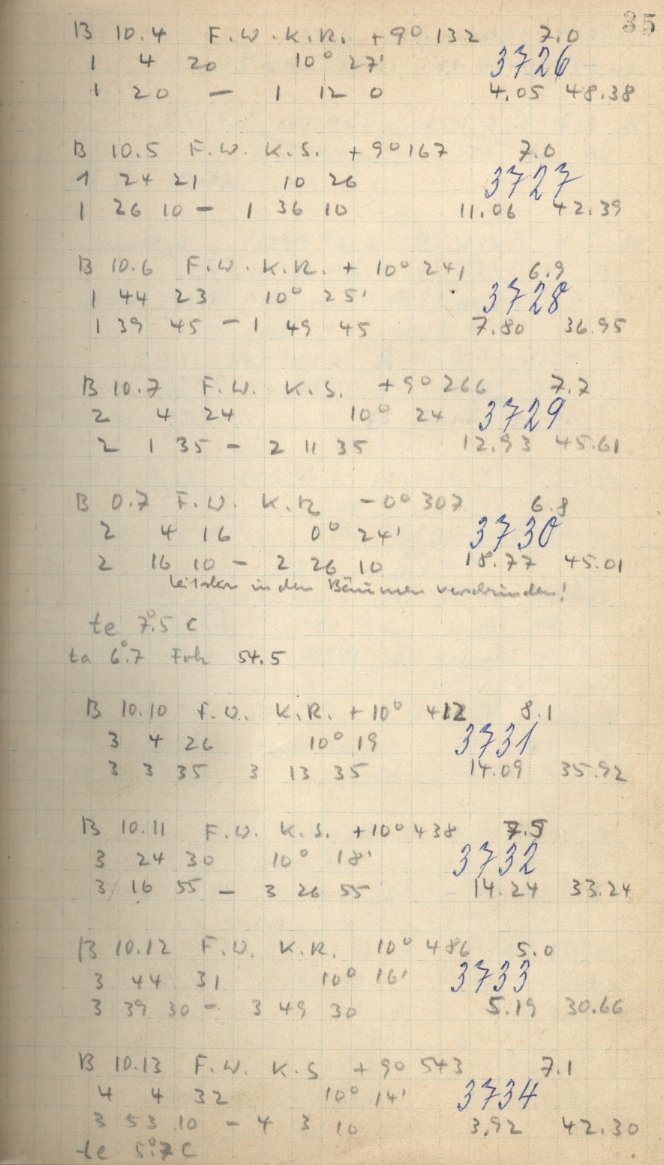 35
B 10.4 F.W. K.R. +9° 132 7.0
1 4 20 10° 27' 3726
1 20 — 1 12 0 4.05 48.38
B 10.5 F.W. K.S. +9° 167 7.0
1 24 21 10 26 3727
1 26 10 — 1 36 10 11.06 42.39
B 10.6 F.W. K.R. + 10° 241 6.9
1 44 23 10° 25' 3728
1 39 45 — 1 49 45 7.80 36.95
B 10.7 F.W. K.S. +9° 266 7.7
2 4 24 10° 24 3729
2 1 35 — 2 11 35 12.93 45.61
B 0.7 F.W. K.R. —0° 307 6.8
2 4 16 0° 24' 3730
2 16 10 — 2 26 10 18.77 45.01
in den Bäumen verschwunden!
te 7°.5 C
ta 6°.7 54.5
B 10.10 F.W. K.R. +10° 412 8.1
3 4 26 10° 19 3731
3 3 35 3 13 35 14.09 35.92
B 10.11 F.W. K.S. +10° 438 7.5
3 24 30 10° 18' 3732
3 16 55 — 3 26 55 14.24 33.24
B 10.12 F.W. K.R. 10° 486 5.0
3 44 31 10° 16' 3733
3 39 30 — 3 49 30 5.19 30.66
B 10.13 F.W. K.S +9° 543 7.1
4 4 32 10° 14' 3734
3 53 10 — 4 3 10 3,92 42.30
te 5°.7 C